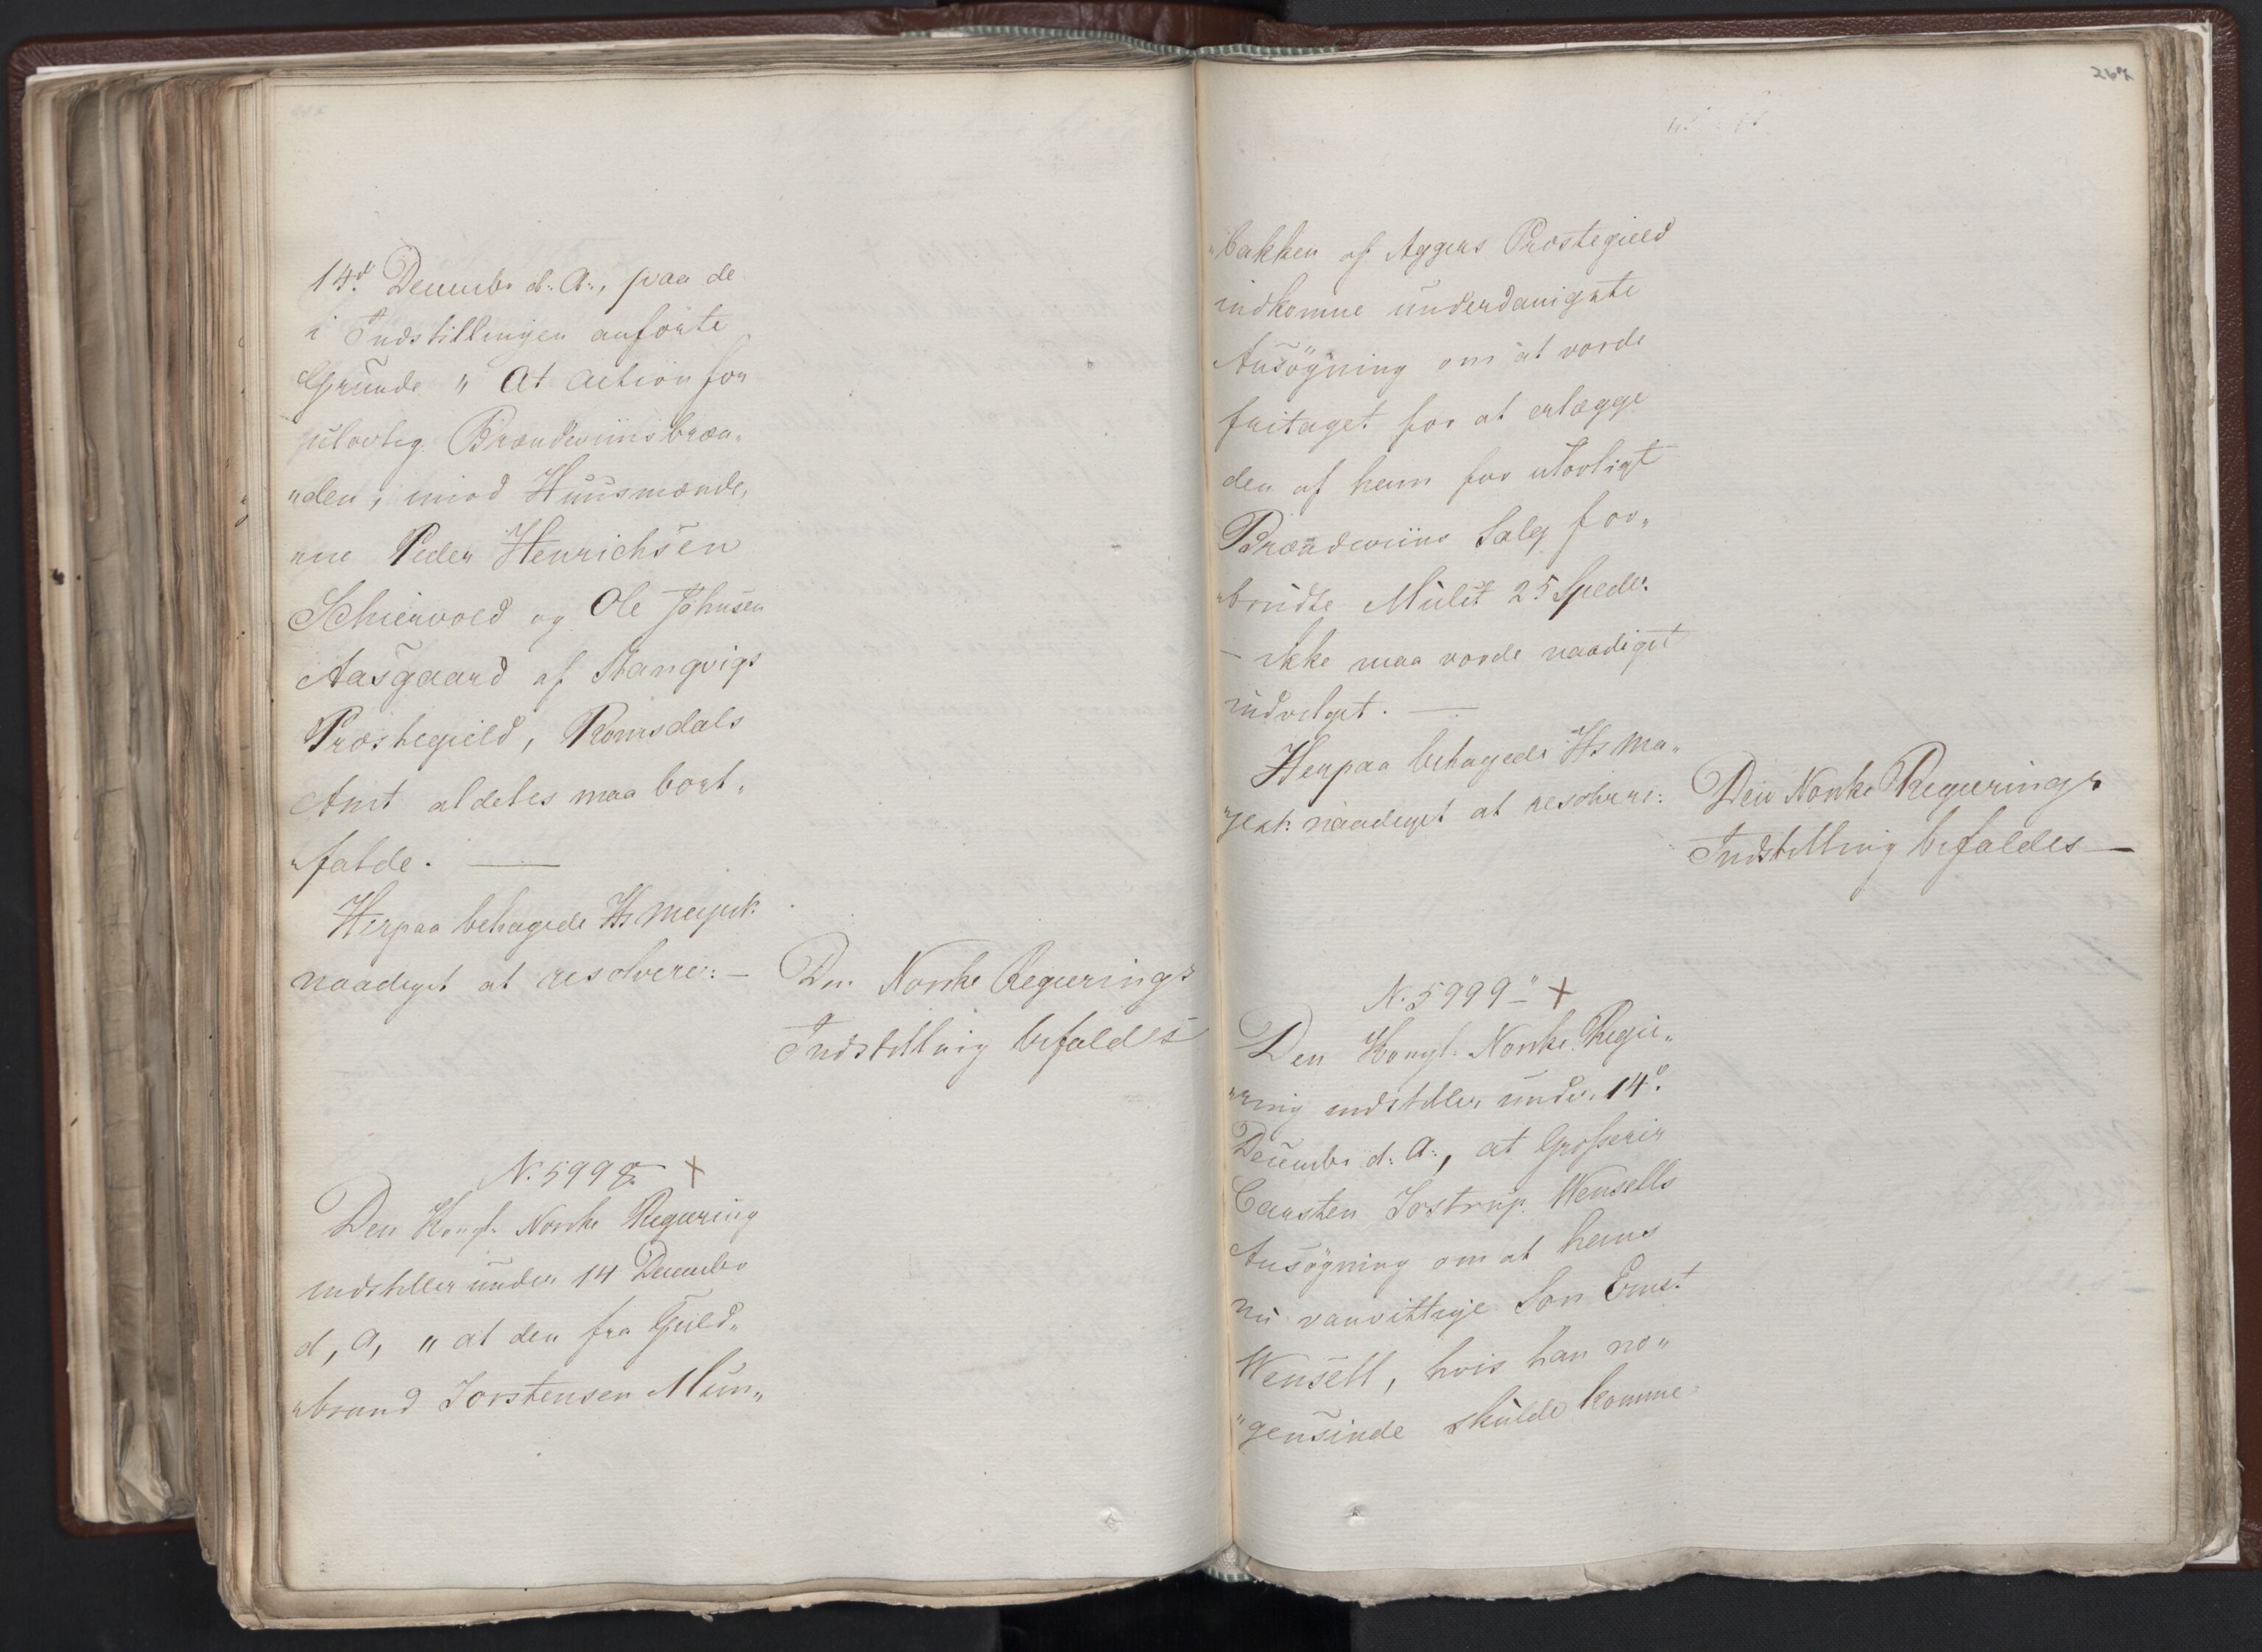 14d. Decembr d: A:, paa de
i Indstillingen anførte
Grunde " At Action for
ulovlig Brændeviinsbræn„
„den, imod Huusmænde„
„ne Peder Henrichsen
Schiervold og Ole Johnsen
Aasgaard af Stangvigs
Præstegield, Romsdals
Amt aldeles maa bort„
„falde. —
Herpaa behagede Hs Majest:
naadigst at resolvere: —
Den Norske Regierings
Indstilling bifaldes
N. 5998. +
Den Kongl. Norske Regiering
indstiller under 14 Decembr
d, A, " at den fra Guld„
„brand Torstensen Mun„
267
„bakken af Aggers Præstegield
indkomne underdanigste
Ansøgning om at vorde
fritaget for at erlægge
den af ham for ulovligt
Brændeviins Salg for„
„brudte Mulct 25 Spedlr.
– ikke maa vorde naadigst
indvilget. —
Herpaa behagede Hs Ma„
„jest: naadigst at resolvere:
Den Norske Regierings
Indstilling bifaldes —
N. 5999 – " +
Den Kongl. Norske Regie„
„ring indstiller under 14d.
Decembr d: A:, at Grosserer
Carsten Tostrup Wensells
Ansøgning om at hans
nu vanvittige Søn Ernst
Wensell, hvis han no„
„gensinde skulde komme